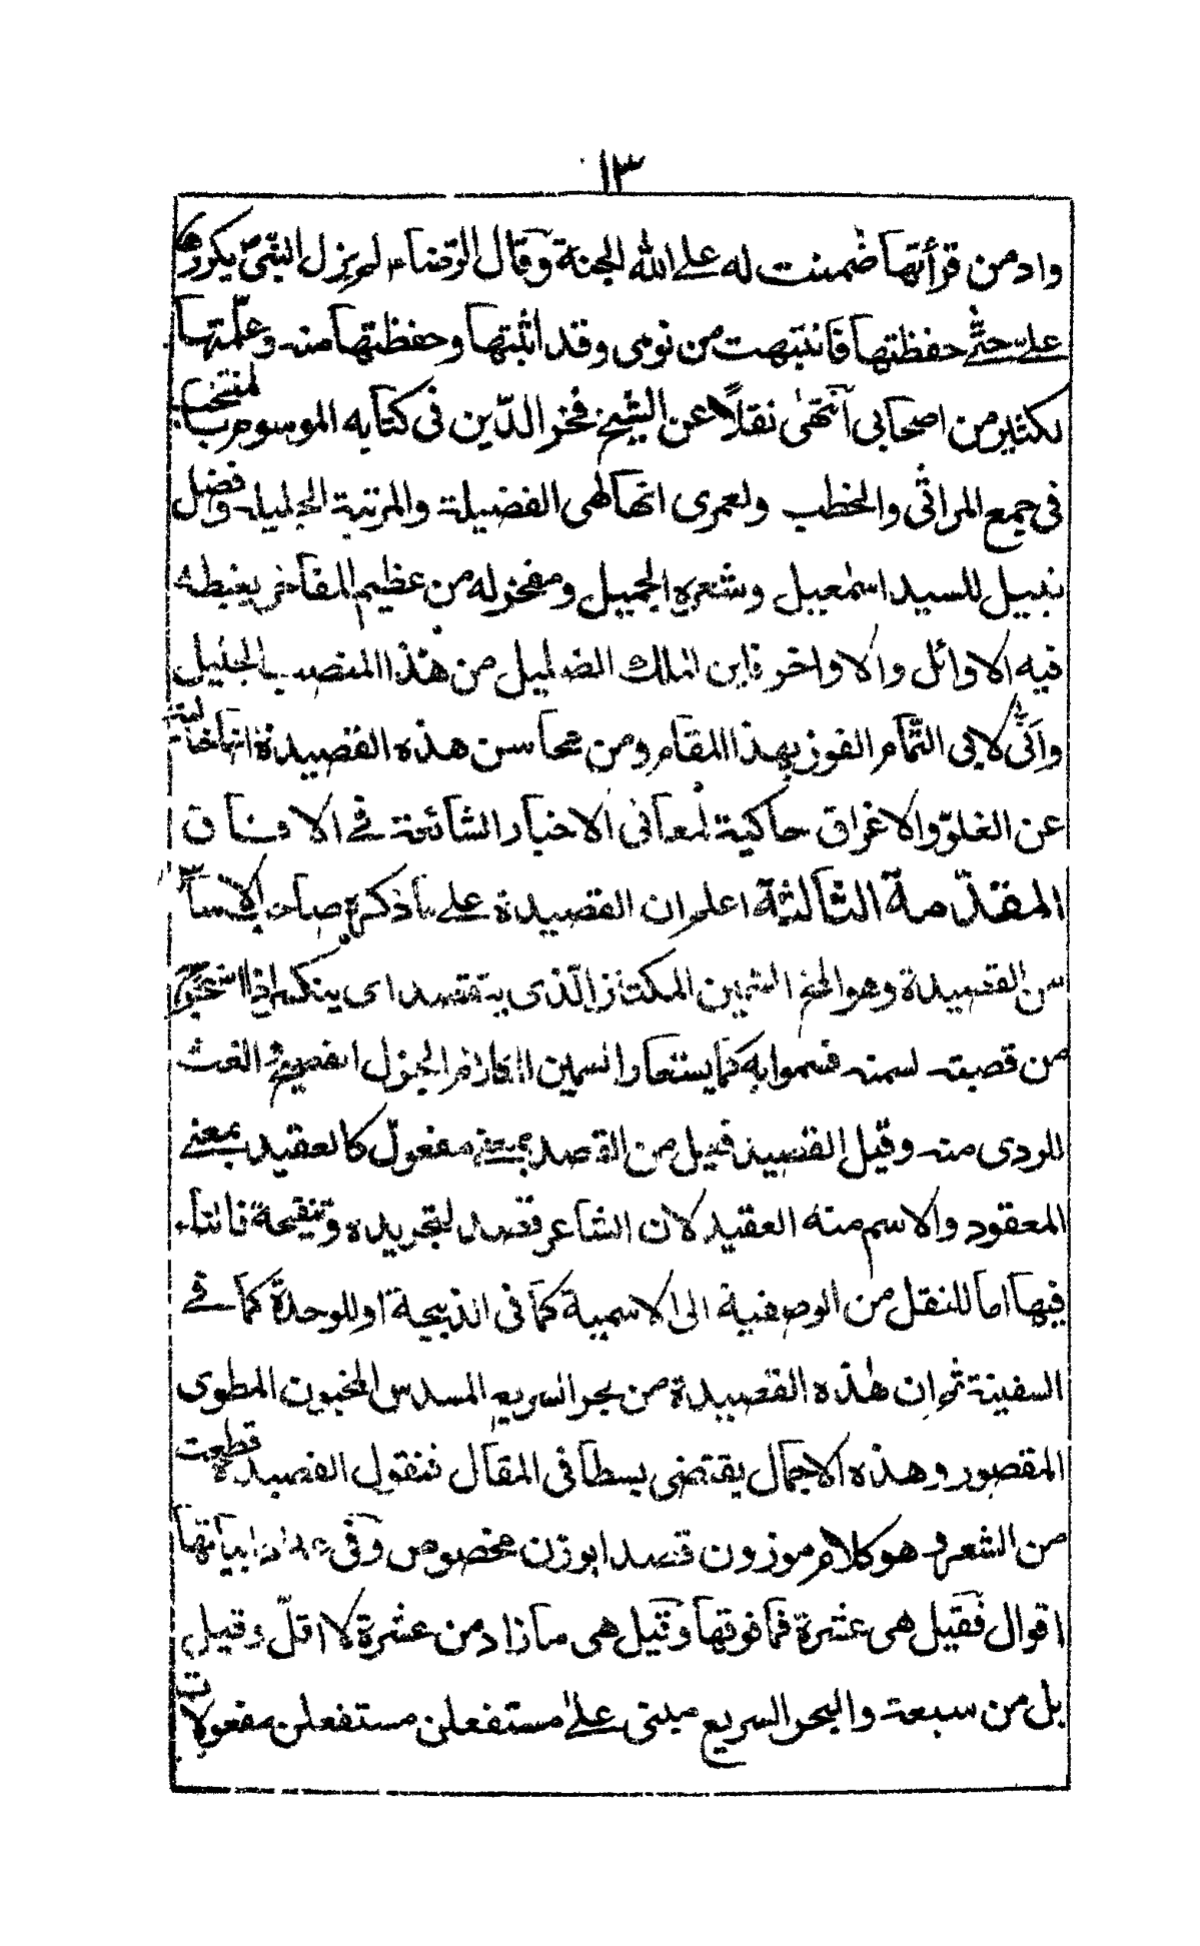 ١٣
وادمن قرأتها ضمنت له على الله الجنة وقال الرضاء لم يزل النبىّ يكررها
علىّ حتّى حفظتها فانتبهت من نومى وقد اثبتها وحفظتها منه وعلّمتها
لكثير من اصحابى انتهى نقلاً عن الشيخ فخر الدّين فى كتابه الموسوم بالمنتخب
فى جمع المراثى والخطب ولعمرى انها لهى الفضيلة والمرتبة الجليلة وفضل
نبيل للسيد اسمٰعيل وشعره الجميل ومفخر له من عظيم المفاخر يغبطه
فيه الاوائل والاواخر فاين الملك الضليل من هٰذا المنصب الجليل
وانّى لابى التّمام الفوز بهذا المقام ومن محاسن هذه القصيدة انها خالية
عن الغلوّ والاغراق حاكية لمعانى الاخبار الشائعة فى الافاق
المقدّمة الثالثية اعلم ان القصيدة على ما ذكره صاحب الاساس
من القصيدة وهو المخ السّمين المكتنز الّذى يتقصد اى يتكسر اذا استخرج
من قصبته لسمنه فسموا به كما يستعار السمين الجزل الفصيح و الغث
للردى منه وقيل القصيد فعيل من القصد بمعنى مفعول كالعقيد بمعنى
المعقود والاسم منه العقيد لان الشاعر قصد لتجريده وتنقيحه فالتاء
فيها اما للنقل من الوصفية الى الاسمية كما فى الذبيحة او للوحدة كما فى
السفينة ثم ان هٰذه القصيدة من بحر السريع المسدس المخبون المطوى
المقصور وهذه الاجمال يقتضى بسطا فى المقال فنقول القصيدة قطعت
من الشعر و هو كلام موزون قصد ابوزن مخصوص وفى عداد ابياتها
اقوال فقيل هى عشرة فما فوقها وقيل هى ما زاد من عشرة لا اقلّ وقيل
بل من سبعة والبحر السريع مبنى على مستفعلن مستفعلن مفعولات